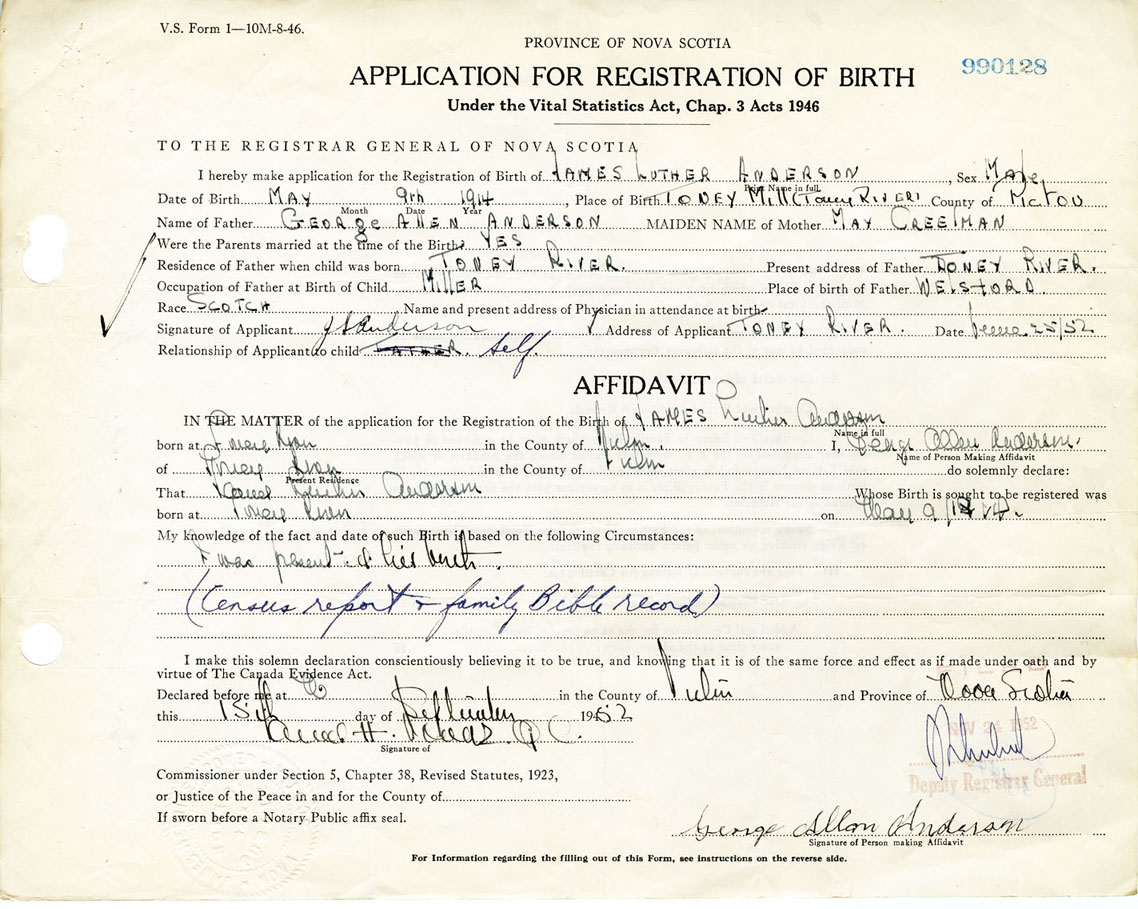 V.S. Form 1—10M-8-46.
PROVINCE OF NOVA SCOTIA
990128
APPLICATION FOR REGISTRATION OF BIRTH
Under the Vital Statistics Act, Chap. 3 Acts 1946
TO THE REGISTRAR GENERAL OF NOVA SCOTIA
I hereby make application for the Registration of Birth of JAMES LUTHER ANDERSON, Sex MALE
Print Name in full
Date of Birth MAY 9th 1914, Place of Birth TONEY Mill (Toney RIVER) County of PICTOU
Month Date Year
Name of Father GEORGE ALLEN ANDERSON MAIDEN NAME of Mother MAY CREELMAN
Were the Parents married at the time of the Birth? YES
Residence of Father when child was born TONEY RIVER. Present address of Father TONEY RIVER.
Occupation of Father at Birth of Child MILLER Place of birth of Father WELSFORD
Race SCOTCH Name and present address of Physician in attendance at birth
Signature of Applicant J L Anderson Address of Applicant TONEY RIVER. Date June 25/52
Relationship of Applicant to child FATHER. Self.
AFFIDAVIT
IN THE MATTER of the application for the Registration of the Birth of JAMES Luther Anderson
Name in full
born at Toney River in the County of Pictou. I, George Allen Anderson.
Name of Person Making Affidavit
of Toney River in the County of Pictou do solemnly declare:
Present Residence
That James Luther Anderson Whose Birth is sought to be registered was
born at Toney River on May 9/1914.
My knowledge of the fact and date of such Birth is based on the following Circumstances:
I was present at his birth.
(Census report & family Bible record)
I make this solemn declaration conscientiously believing it to be true, and knowing that it is of the same force and effect as if made under oath and by
virtue of The Canada Evidence Act.
Declared before me at in the County of Pictou and Province of Nova Scotia
this 15th day of September 1952
Signature of
NOV 24 1952
Deputy Registrar General
Commissioner under Section 5, Chapter 38, Revised Statutes, 1923,
or Justice of the Peace in and for the County of
If sworn before a Notary Public affix seal.
George Allan Anderson
Signature of Person making Affidavit
For Information regarding the filling out of this Form, see instructions on the reverse side.